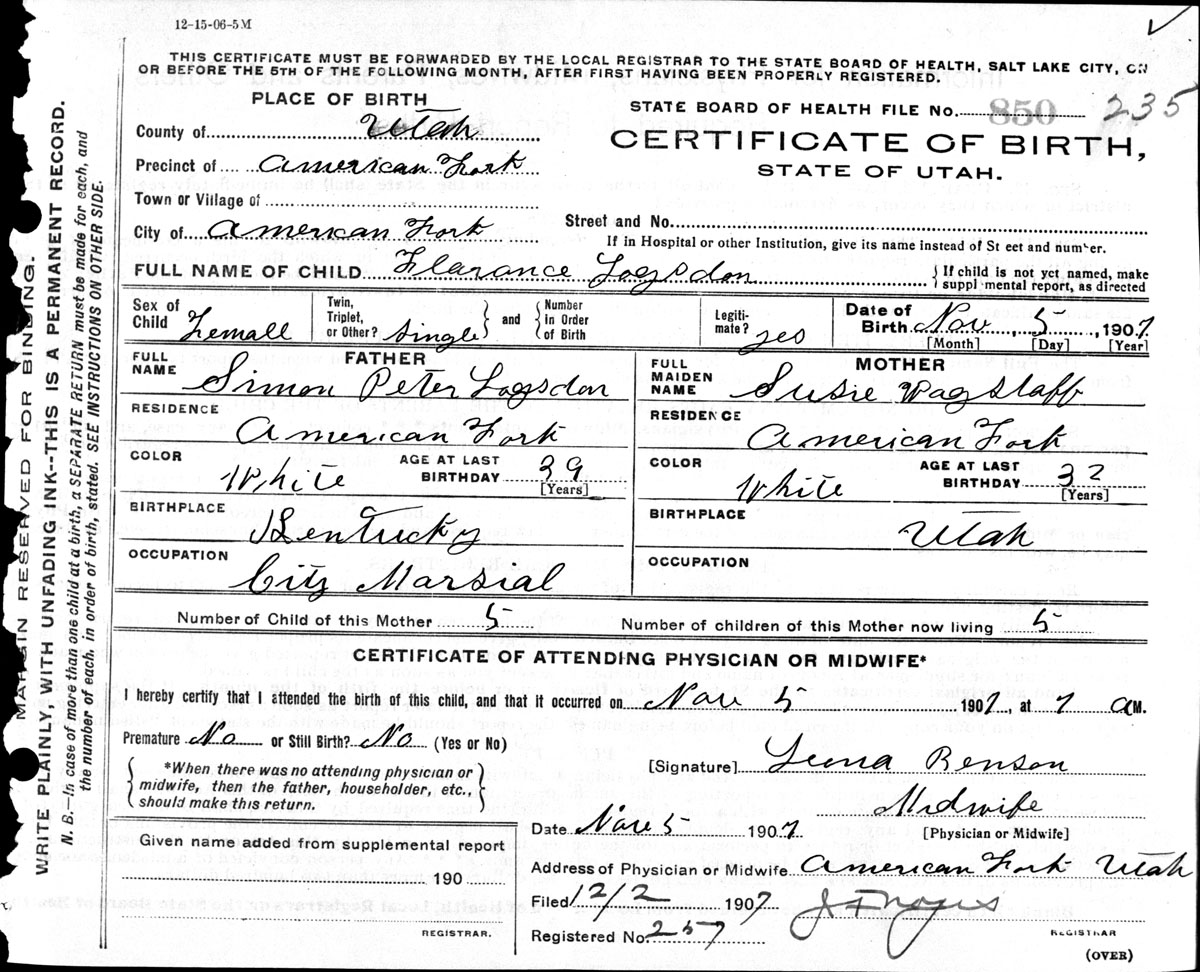 12-15-06-5M
THIS CERTIFICATE MUST BE FORWARDED BY THE LOCAL REGISTRAR TO THE STATE BOARD OF HEALTH, SALT LAKE CITY, ON
OR BEFORE THE 5TH OF THE FOLLOWING MONTH, AFTER FIRST HAVING BEEN PROPERLY REGISTERED.
PLACE OF BIRTH
County of Utah
Precinct of American Fork
Town or Village of
City of American Fork
STATE BOARD OF HEALTH FILE No. 850 235
CERTIFICATE OF BIRTH,
STATE OF UTAH.
Street and No.
If in Hospital or other Institution, give its name instead of St eet and number.
FULL NAME OF CHILD Florance Logsdon { If child is not yet named, make
suppl mental report, as directed
Sex of Child Femall Twin, Triplet, or Other? Single } and { Number in Order of Birth Legiti-mate? yes Date of Birth Nov, 5, 1907
[Month] [Day] [Year]
FATHER
FULL NAME Simon Peter Logsdon
RESIDENCE American Fork
COLOR White AGE AT LAST BIRTHDAY 39 [Years]
BIRTHPLACE Kentucky
OCCUPATION City Marsial
MOTHER
FULL MAIDEN NAME Susie Wagstaff
RESIDENCE American Fork
COLOR White AGE AT LAST BIRTHDAY 32 [Years]
BIRTHPLACE Utah
OCCUPATION
Number of Child of this Mother 5 Number of children of this Mother now living 5
CERTIFICATE OF ATTENDING PHYSICIAN OR MIDWIFE*
I hereby certify that I attended the birth of this child, and that it occurred on Nov 5 1907, at 7 a M.
Premature No or Still Birth? No (Yes or No)
{ *When there was no attending physician or
midwife, then the father, householder, etc.,
should make this return. }
[Signature] Lena Benson
Midwife
Date Nov 5 1907 [Physician or Midwife]
Given name added from supplemental report
190
REGISTRAR.
Address of Physician or Midwife American Fork Utah
Filed 12/2 1907 J F Noyes
REGISTRAR
Registered No. 257
(OVER)
MARGIN RESERVED FOR BINDING.
WRITE PLAINLY, WITH UNFADING INK--THIS IS A PERMANENT RECORD.
N. B.--In case of more than one child at a birth, a SEPARATE RETURN must be made for each, and
the number of each, in order of birth, stated. SEE INSTRUCTIONS ON OTHER SIDE.